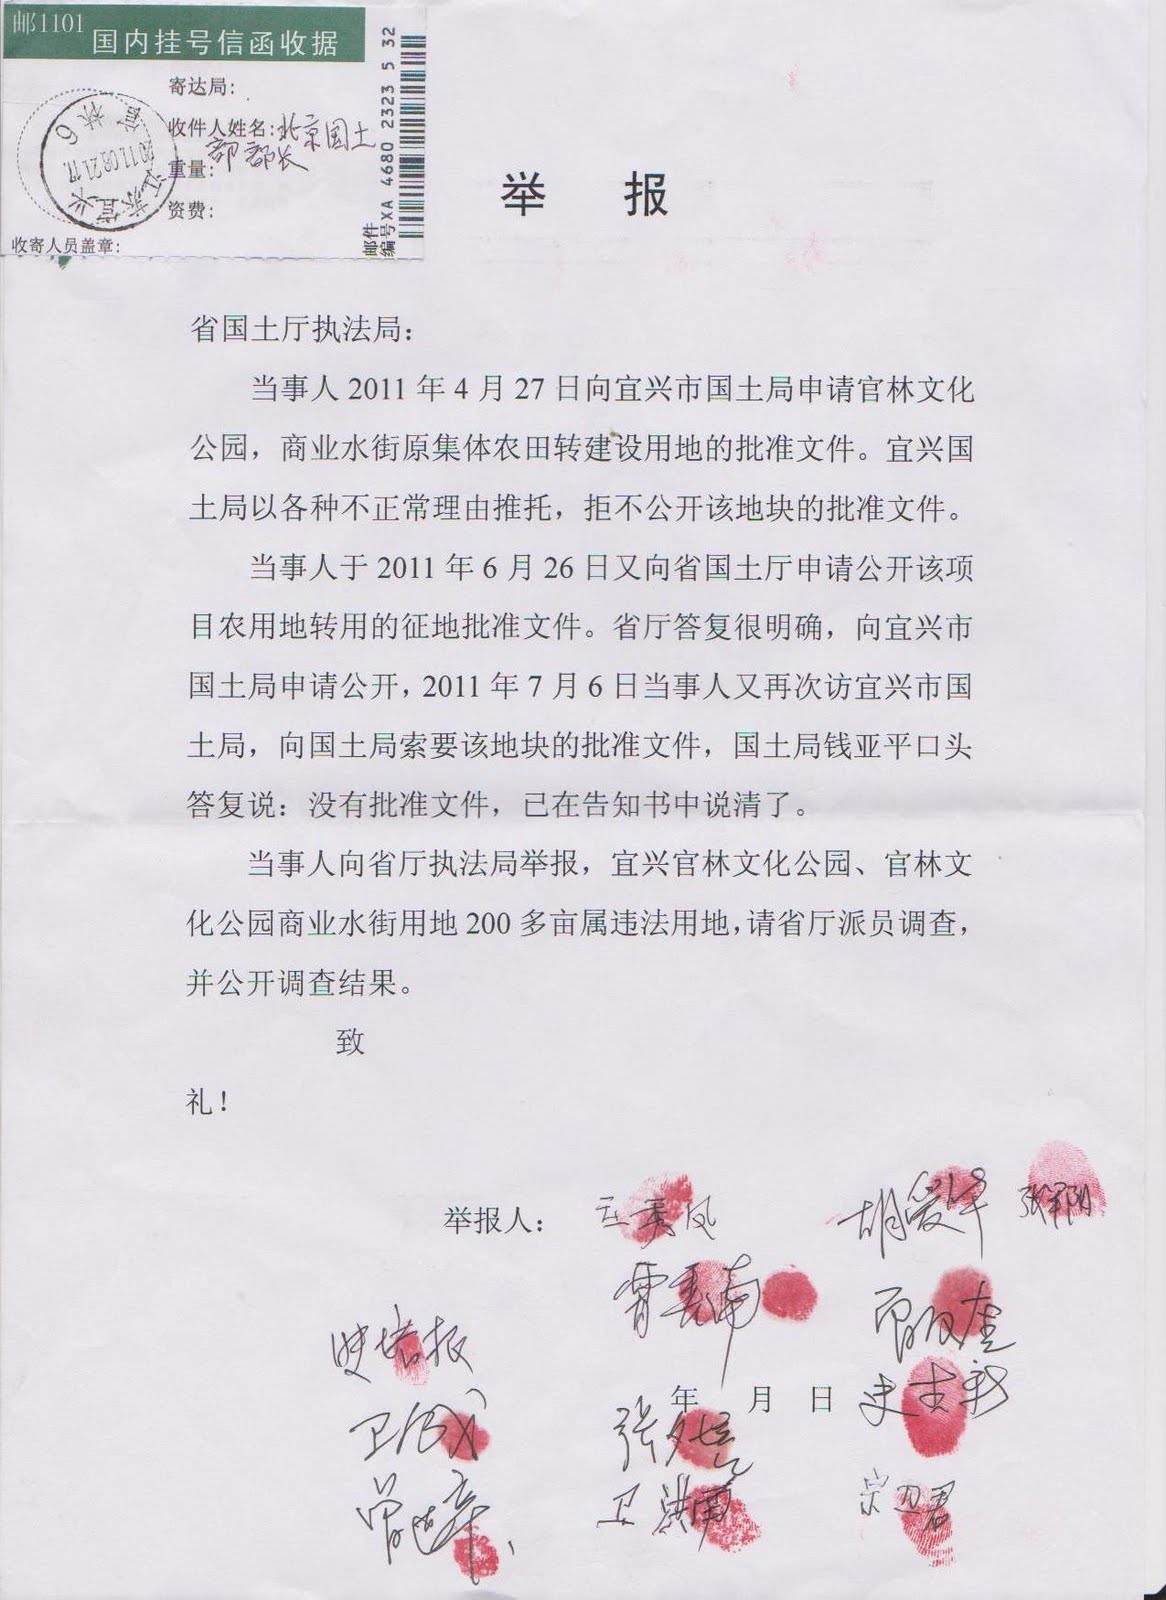 邮1101
国内挂号信函收据
寄达局：
收件人姓名：北京国土
部部长
重量：
资费：
收寄人员盖章：
邮件
编号XA 4680 2323 5 32
江苏宜兴
2011.08.21.17
举 报
省国土厅执法局：
当事人 2011 年 4 月 27 日向宜兴市国土局申请官林文化
公园，商业水街原集体农田转建设用地的批准文件。宜兴国
土局以各种不正常理由推托，拒不公开该地块的批准文件。
当事人于 2011 年 6 月 26 日又向省国土厅申请公开该项
目农用地转用的征地批准文件。省厅答复很明确，向宜兴市
国土局申请公开，2011 年 7 月 6 日当事人又再次访宜兴市国
土局，向国土局索要该地块的批准文件，国土局钱亚平口头
答复说：没有批准文件，已在告知书中说清了。
当事人向省厅执法局举报，宜兴官林文化公园、官林文
化公园商业水街用地 200 多亩属违法用地，请省厅派员调查，
并公开调查结果。
致
礼！
举报人：
史培报
年 月 日
卫洪南
宗卫君